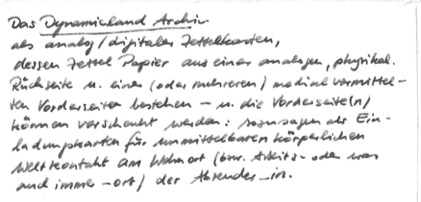 Das Dynamicland Archiv
als analog/digitaler Zettelkasten,
dessen Zettel Papier aus einer analogen, physikal.
Rückseite u. einer (oder mehreren) medial vermittel-
ten Vorderseiten bestehen – u. die Vorderseite(n)
können verschenkt werden: sozusagen als Ein-
ladungskarten für unmittelbaren körperlichen
Weltkontakt am Wohnort (bzw. Arbeits- oder was
auch immer -ort) der Absender_in.